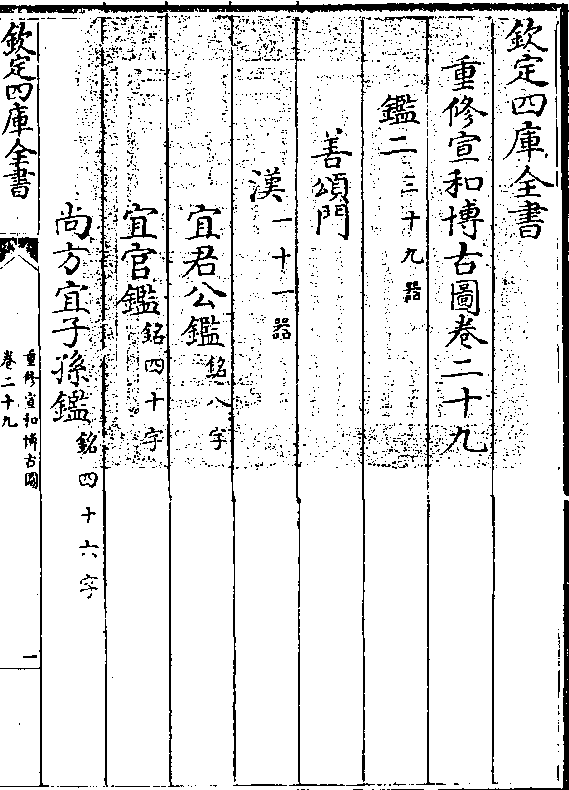 欽定四庫全書
重修宣和博古圖卷二十九
鑑二三十九器
善頌門
漢一十一器
宜君公鑑銘八字
宜官鑑銘四十字
尚方宜子孫鑑銘四十六字
欽定四庫全書
重修宣和博古圖
卷二十九
一